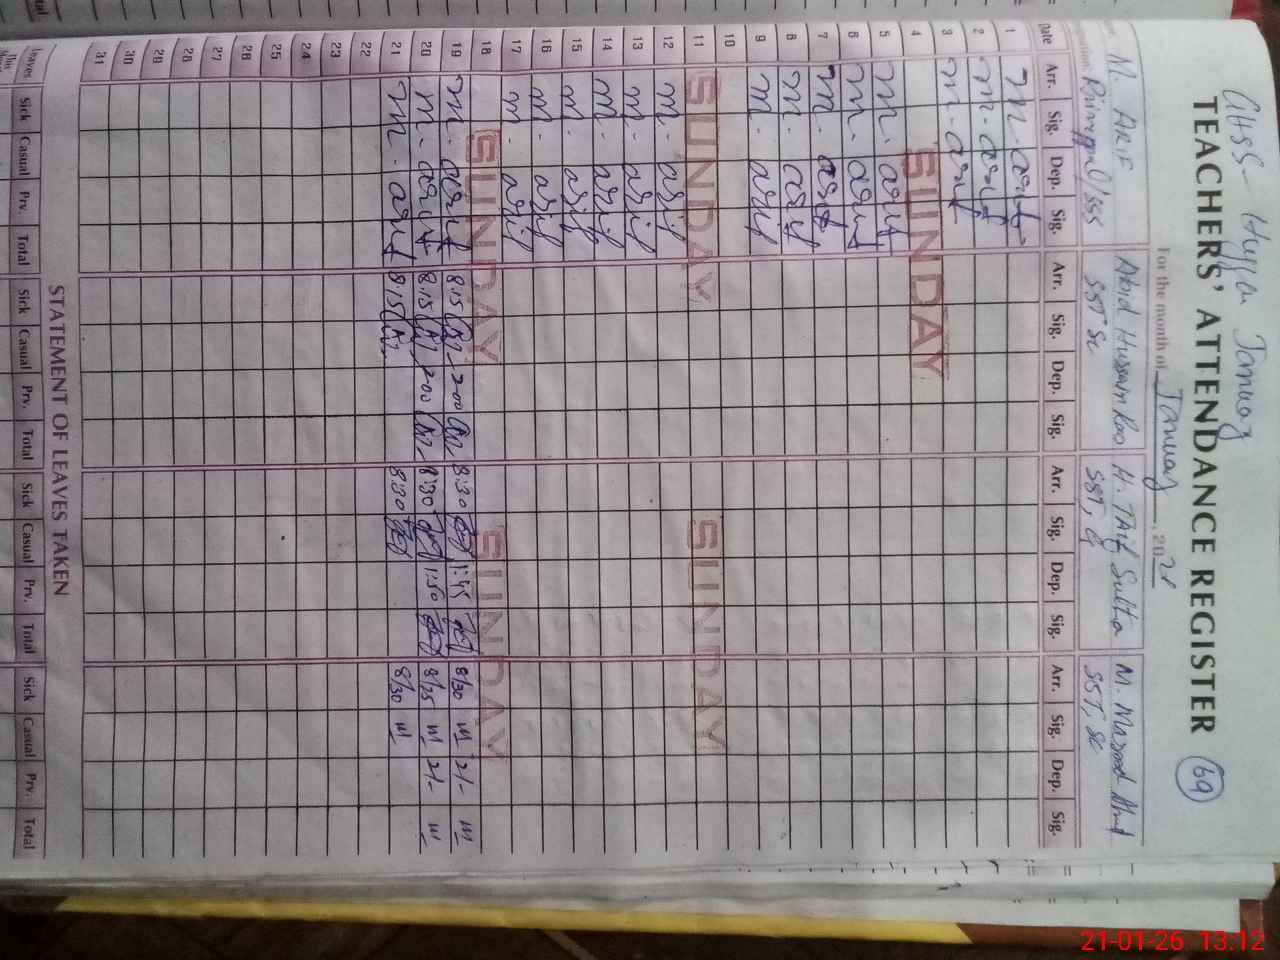 GHSS - Hujra January
TEACHERS' ATTENDANCE REGISTER 69
For the month of January, 2026
M. ARIF Abid Hussain Rao H. TAif Sulta M. Masood Ahmd
Principal/SSS SST Sc SST, G SST, SC
Date Arr. Sig. Dep. Sig. Arr. Sig. Dep. Sig. Arr. Sig. Dep. Sig. Arr. Sig. Dep. Sig.
1 m. arif
2 m. arif
3 m. arif
4 SUNDAY
5 m. arif
6 m. arif
7 m. arif
8 m. arif
9 m. arif
10
11 SUNDAY SUNDAY
12 m. arif
13 m. arif
14 m. arif
15 m. arif
16 m. arif
17 m. arif
18 SUNDAY SUNDAY
19 m. arif 8:15 2:00 8:30 1:45 8/30 2/-
20 m. arif 8:15 2:00 8:30 1:50 8/25 2/-
21 m. arif 8:15 8:30 8/30
22
23
24
25
26
27
28
29
30
31
STATEMENT OF LEAVES TAKEN
Leaves Sick Casual Prv. Total Sick Casual Prv. Total Sick Casual Prv. Total Sick Casual Prv. Total
21-01-26 13:12